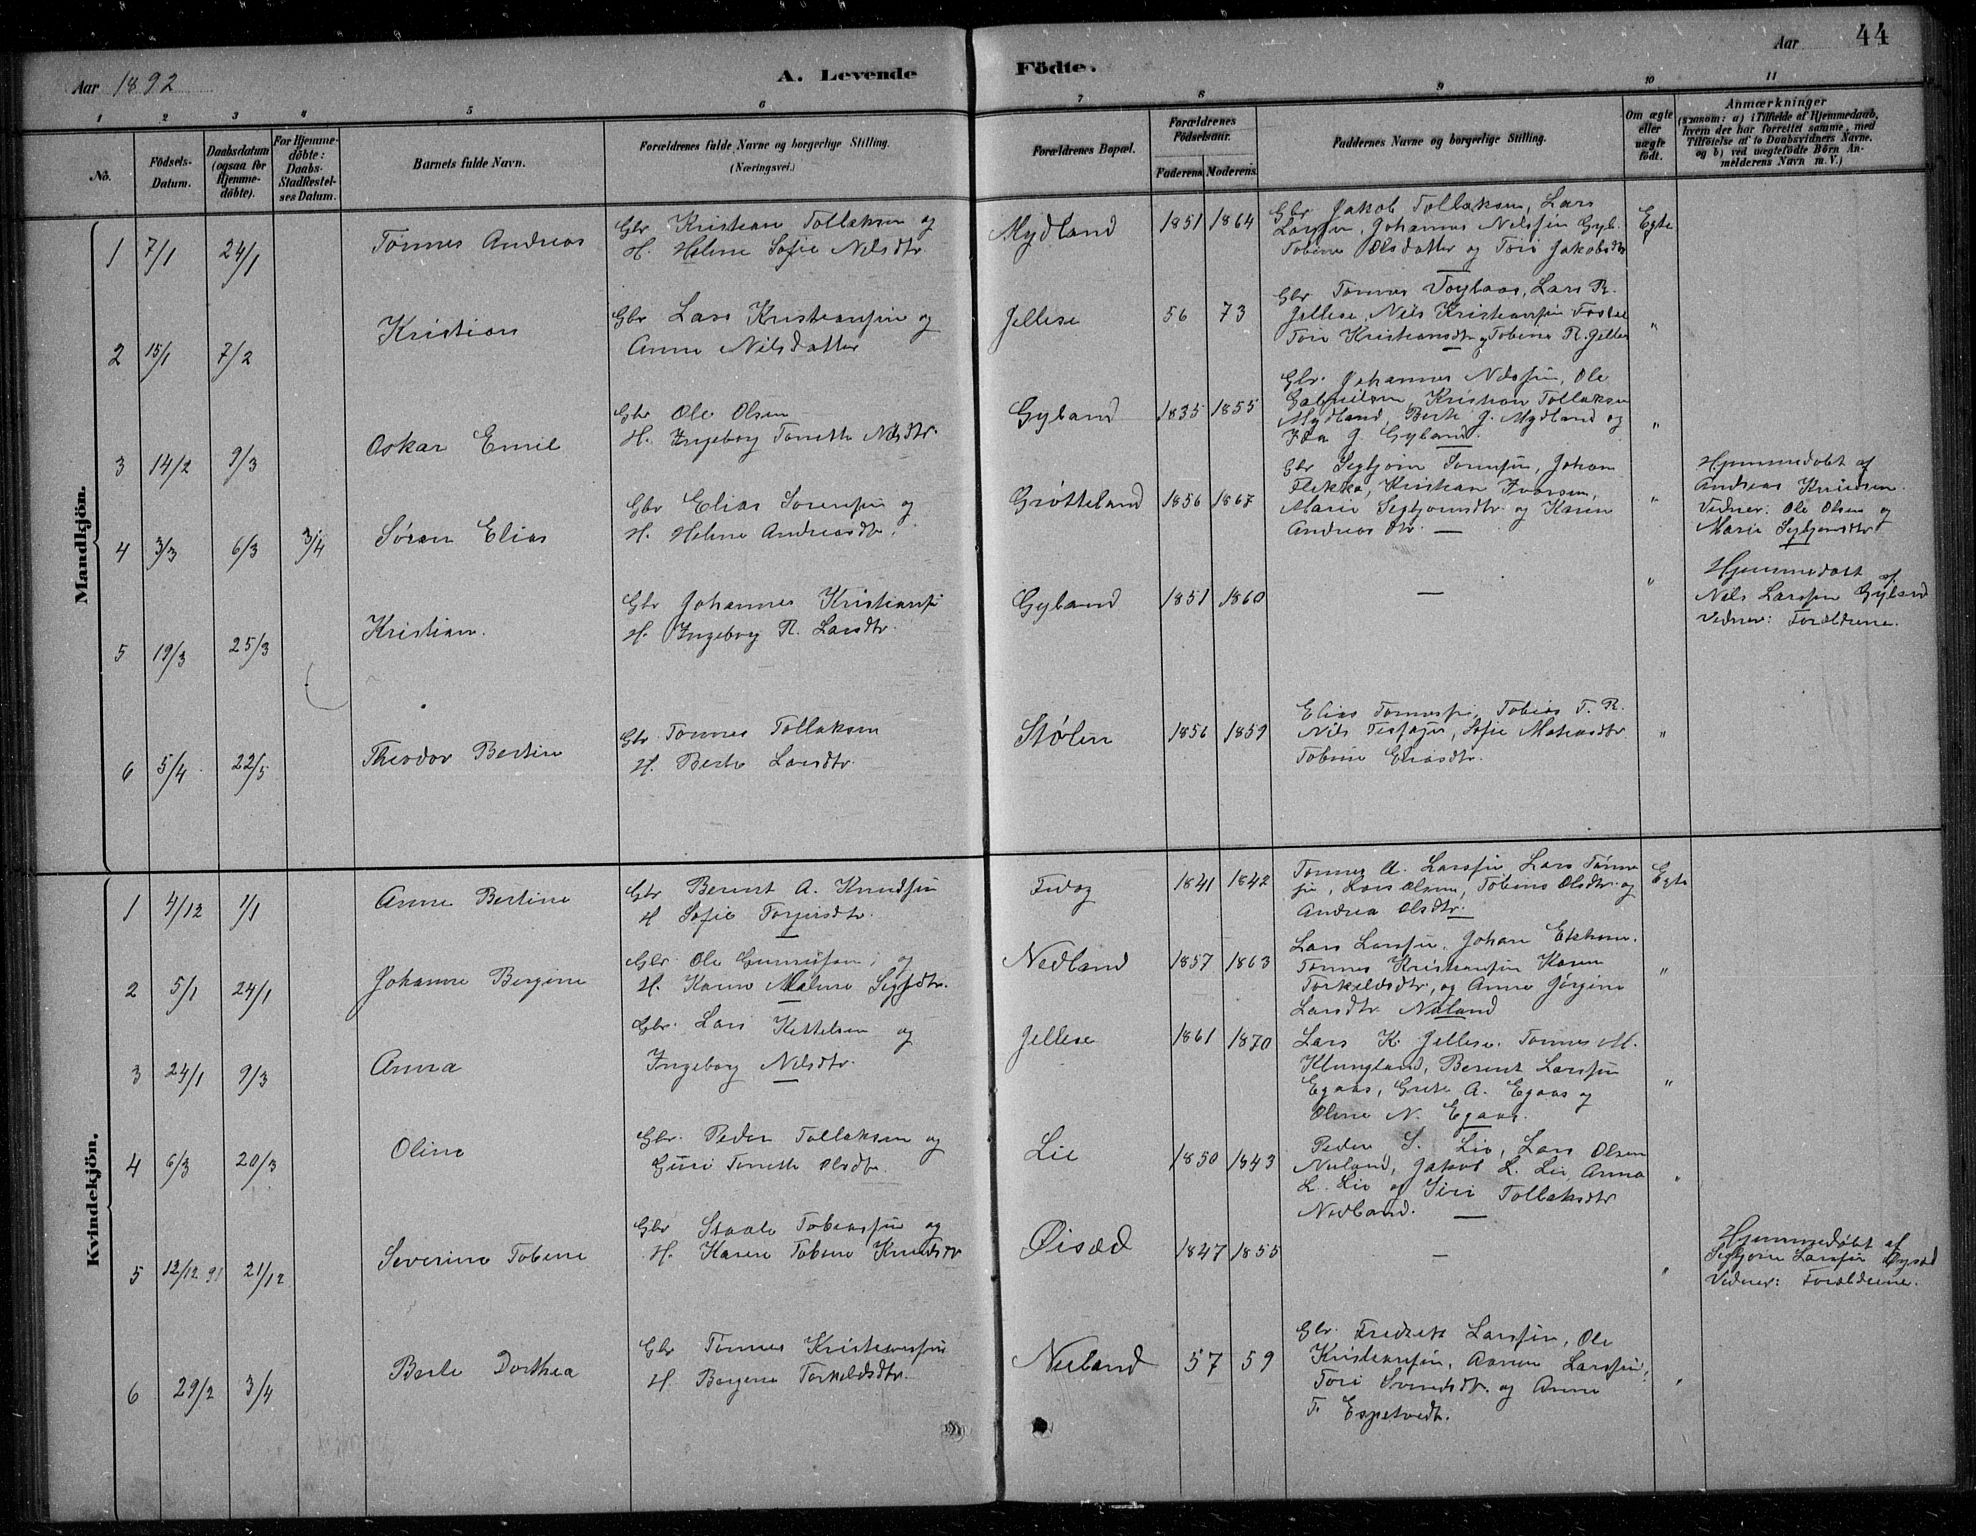 44
Aar 1892
A. Levende Födte.
Aar
1 2 3 4 5 6 7 8 9 10 11
No.
Födsels-Datum.
Daabsdatum (ogsaa for Hjemme-döbte).
For Hjemme-döbte: Daabs-Stadfæstel-ses Datum.
Barnets fulde Navn.
Forældrenes fulde Navne og borgerlige Stilling.
(Næringsvei.)
Forældrenes Bopæl.
Forældrenes Födselsaar.
Faderens Moderens
Faddernes Navne og borgerlige Stilling.
Om ægte eller uægte födt.
Anmærkninger
(saasom: a) i Tilfælde af Hjemmedaab, hvem der har forrettet samme, med Tilföielse af to Daabsvidners Navne. og b) ved uægtefödte Börn An-melderens Navn m. V.)
Mandkjön.
1 7/1 24/1 Tönnes Andreas
Gbr Kristian Tollaksen og
H. Helene Sofie Nilsdtr
Mydland 1851 1864
Gbr Jakob Tollaksen, Lars
Larssen, Johannes Nilssen Gyl.
Tobine Olsdatter og Tori Jakobsdtr
Egte
2 15/1 7/2 Kristian
Gbr Lars Kristianssen og
Anne Nilsdatter
Jellese 56 73
Gbr Tönnes Lars R.
Jellese, Nils Kristianssen
Tori Kristiansdtr, Tobine R. Jellese
"
3 14/2 9/3 Oskar Emil
Gbr Ole Olsen
H. Ingeborg Tonette Nilsdtr.
Gyland 1835 1855
Gbr. Johannes Nilssen, Ole
Gabrielsen, Kristian Tollaksen
Mydland, Berte J. Mydland og
Ida J. Gyland.
"
4 3/3 6/3 3/4 Søren Elias
Gbr Elias Sørensen og
H. Helene Andreasdtr.
Grøtteland 1856 1867
Gbr Johan
Flikka, Kristian Ivarsen,
Marie Segbjørnsdtr og Karen
Andreasdtr. —
"
Hjemmedøbt af
Andreas Knudsen.
Vidner: Ole Olsen og
Marie Segbjørnsdtr
5 19/3 25/3 Kristian.
Gbr Johannes Kristianssen
H. Ingeborg R. Larsdtr.
Gyland 1851 1860
—
"
Hjemmedøbt af
Nils Larssen Gyland
Vidner: Forældrene.
6 5/4 22/5 Theodor Bertin
Gbr Tönnes Tollaksen
H. Berte Larsdtr.
Stølen 1856 1859
Elias Tönnessen, Tobias T. R.
Nils Sofie Matiasdtr.
Tobine Eliasdtr.
"
Kvindekjön.
1 4/12 1/1 Anne Bertine
Gbr Berent A. Knudsen
H Sofie Torjersdtr.
Fidog 1841 1842
Tönnes A. Larssen Lars Tönnes-
sen, Lars Olsen, Tobine Olsdtr. og
Andrea Olsdtr.
Egte
2 5/1 24/1 Johanne Bergine
Gbr. Ole Gunnufsen og
H. Karen Malene
Nedland 1857 1863
Lars Larssen, Johan
Tönnes Kristianssen Karen
Torkeldsdtr, og Anne Jørgine
Larsdtr Nuland
"
3 24/1 9/3 Anna
Gbr. Lars Kettelsen og
Ingeborg Nilsdtr.
Jellese 1861 1870
Lars K. Jellese. Tönnes M.
Klungland, Berent Larssen
Egaas, Grete A. Egaas og
Oline N. Egaas.
"
4 6/3 20/3 Oline
Gbr. Peder Tollaksen og
Guri Tonette Olsdtr.
Lie 1850 1843
Peder S. Lie, Lars Olsen
Nuland, Jakob L. Lie Anna
L. Lie og Siri Tollaksdtr
Nedland. —
"
5 12/12 91 21/12 Severine Tobine
Gbr Staale Tobiassen og
H. Karen Tobine Knudsdtr
Øisæd 1847 1855
—
"
Hjemmedøbt af
Segbjørn Larssen Øysæd
Vidner: Forældrene.
6 29/2 3/4 Berte Dorthea
Gbr Tönnes Kristianssen
H. Bergine Torkeldsdtr.
Nuland 57 59
Gbr. Fredrik Larssen, Ole
Kristianssen, Aanen Larssen,
Tori og Anne
T. Espetvedt.
"